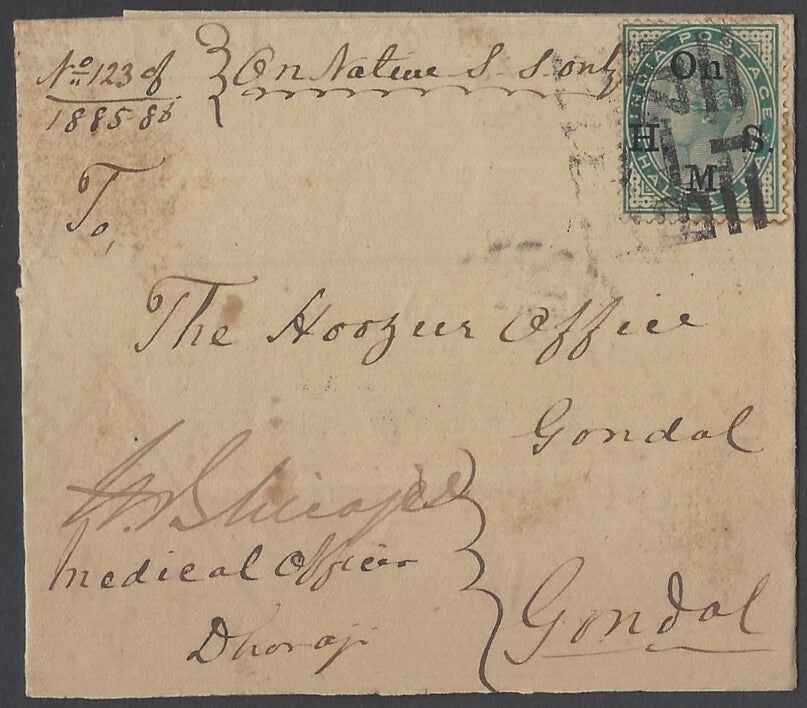 No 123 of
1885 86
On Native S. S. only
INDIA POSTAGE
On
H. S.
M.
HALF ANNA
To,
The Hoozur Office
Gondal
Medical Officer
Dhoraji
Gondal